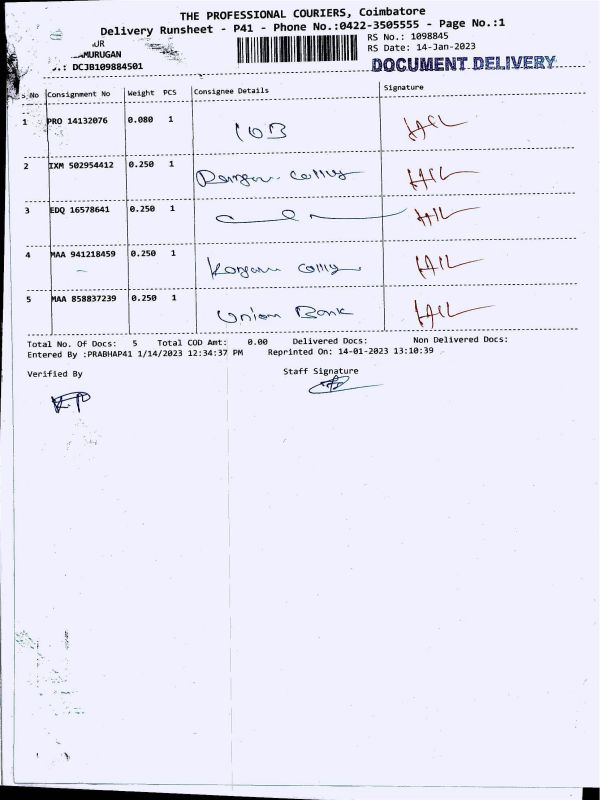 THE PROFESSIONAL COURIERS, Coimbatore
Delivery Runsheet - P41 - Phone No.:0422-3505555 - Page No.:1
RS No.: 1098845
RS Date: 14-Jan-2023
DCJB109884501
DOCUMENT DELIVERY
No Consignment No Weight PCS Consignee Details Signature
1 PRO 14132076 0.080 1 IOB
2 IXM 502954412 0.250 1
3 EDQ 16578641 0.250 1
4 MAA 941218459 0.250 1
5 MAA 858837239 0.250 1 Union Bank
Total No. Of Docs: 5 Total COD Amt: 0.00 Delivered Docs: Non Delivered Docs:
Entered By :PRABHAP41 1/14/2023 12:34:37 PM Reprinted On: 14-01-2023 13:10:39
Verified By Staff Signature